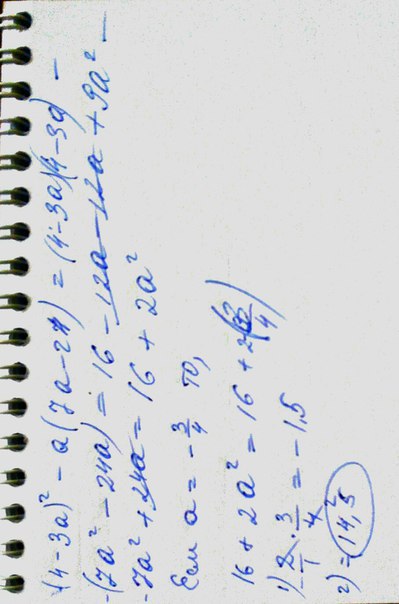 (4-3a)² - a(7a-24) = (4-3a)(4-3a) -
-(7a² - 24a) = 16 - 12a - 12a + 9a² -
-7a² + 24a = 16 + 2a²
Если a = -3/4 то,
16 + 2a² = 16 + 2(-3/4)
1) -2/1 · 3/4 = -1,5
2) = 14,5